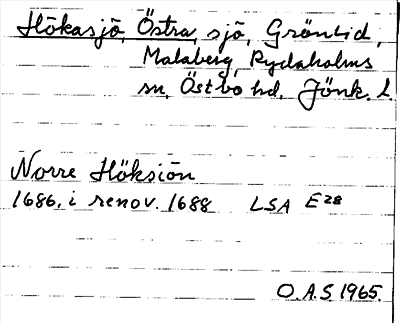 Hökasjö, Östra, sjö, Gröntid,
Malaberg, Rydaholms
sn, Östbo hd, Jönk. L.
Norre Höksiön
1686, i renov. 1688 LSA E28
O.A.S 1965.